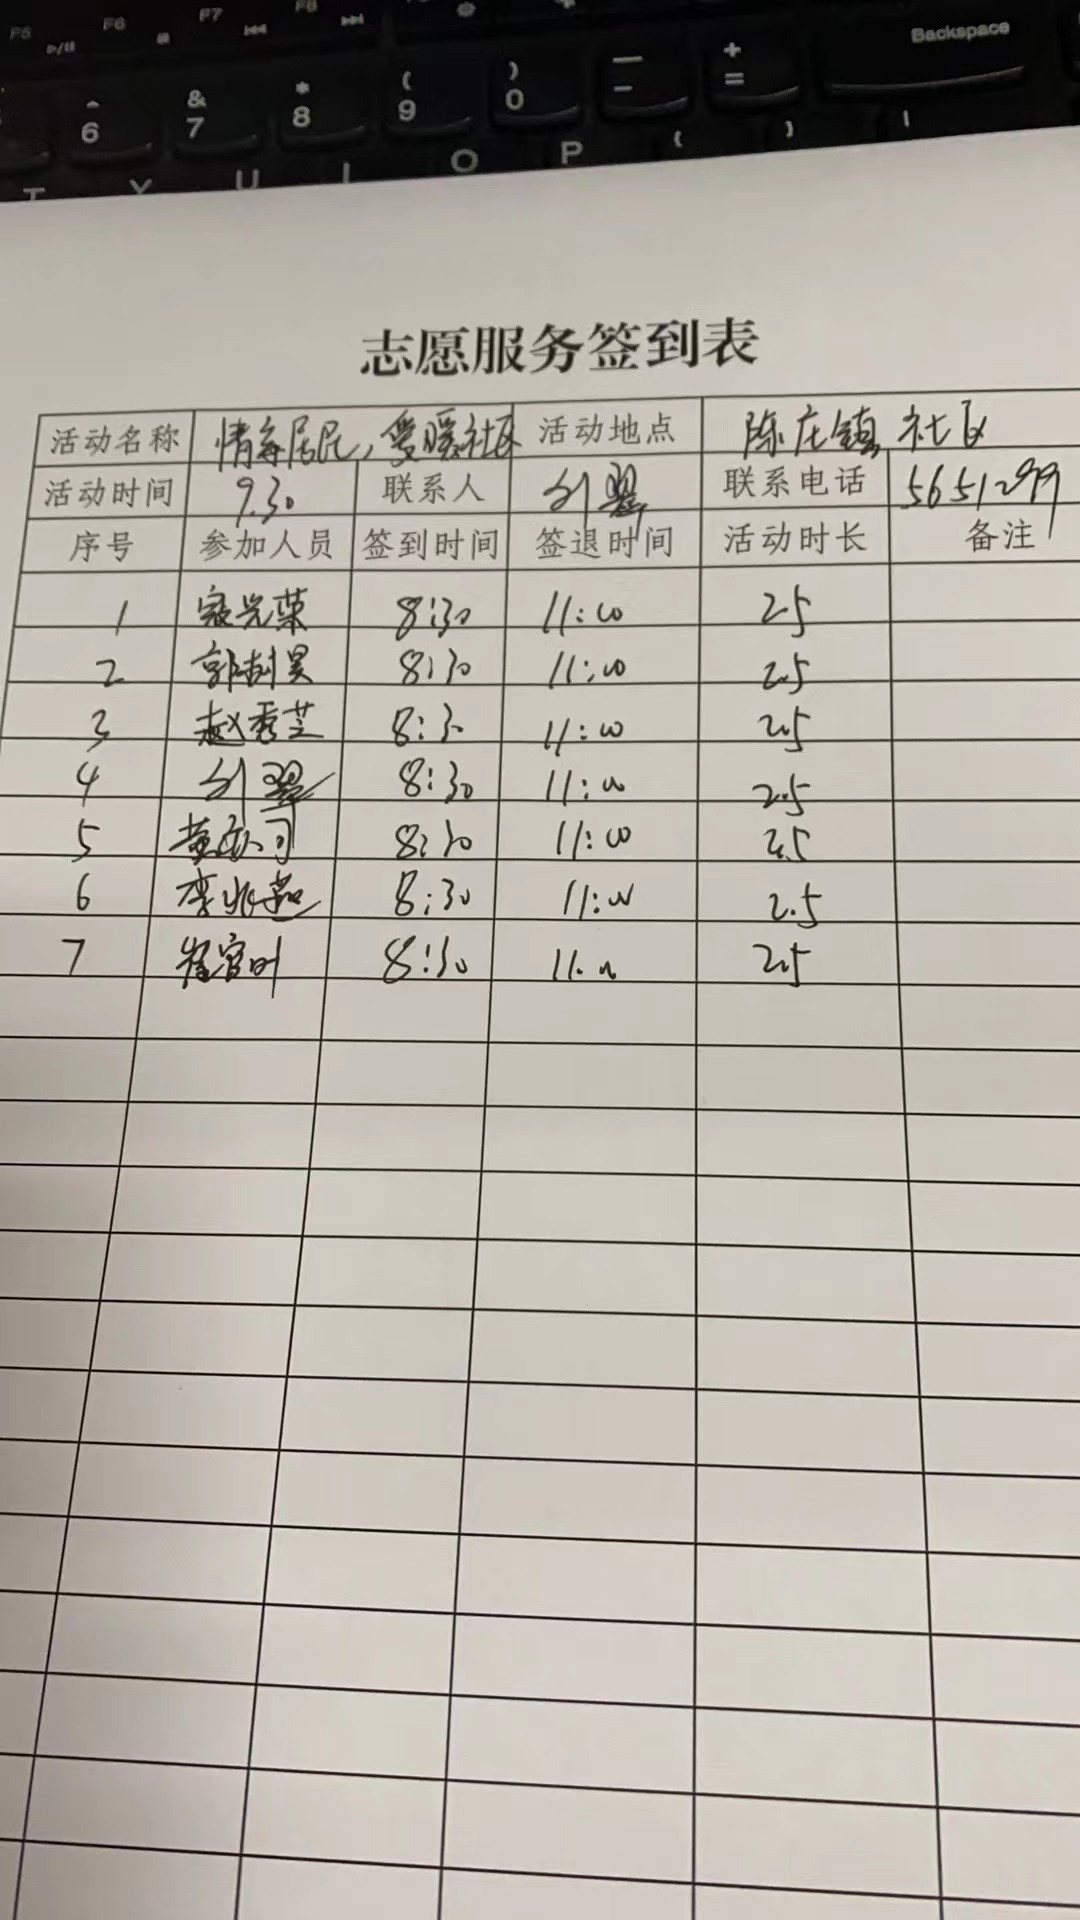 F5 F6 F7 F8
6 & 7 * 8 ( 9 ) 0 — - + = Backspace
T Y U I O P
志愿服务签到表
活动名称 情系居民,爱暖社区 活动地点 陈庄镇社区
活动时间 9.30 联系人 刘翠 联系电话 5651299
序号 参加人员 签到时间 签退时间 活动时长 备注
1 寇光荣 8:30 11:00 2.5
2 郭树昊 8:30 11:00 2.5
3 赵秀芝 8:30 11:00 2.5
4 刘翠 8:30 11:00 2.5
5 黄 8:30 11:00 2.5
6 李兆 8:30 11:00 2.5
7 崔官 8:30 11:00 2.5